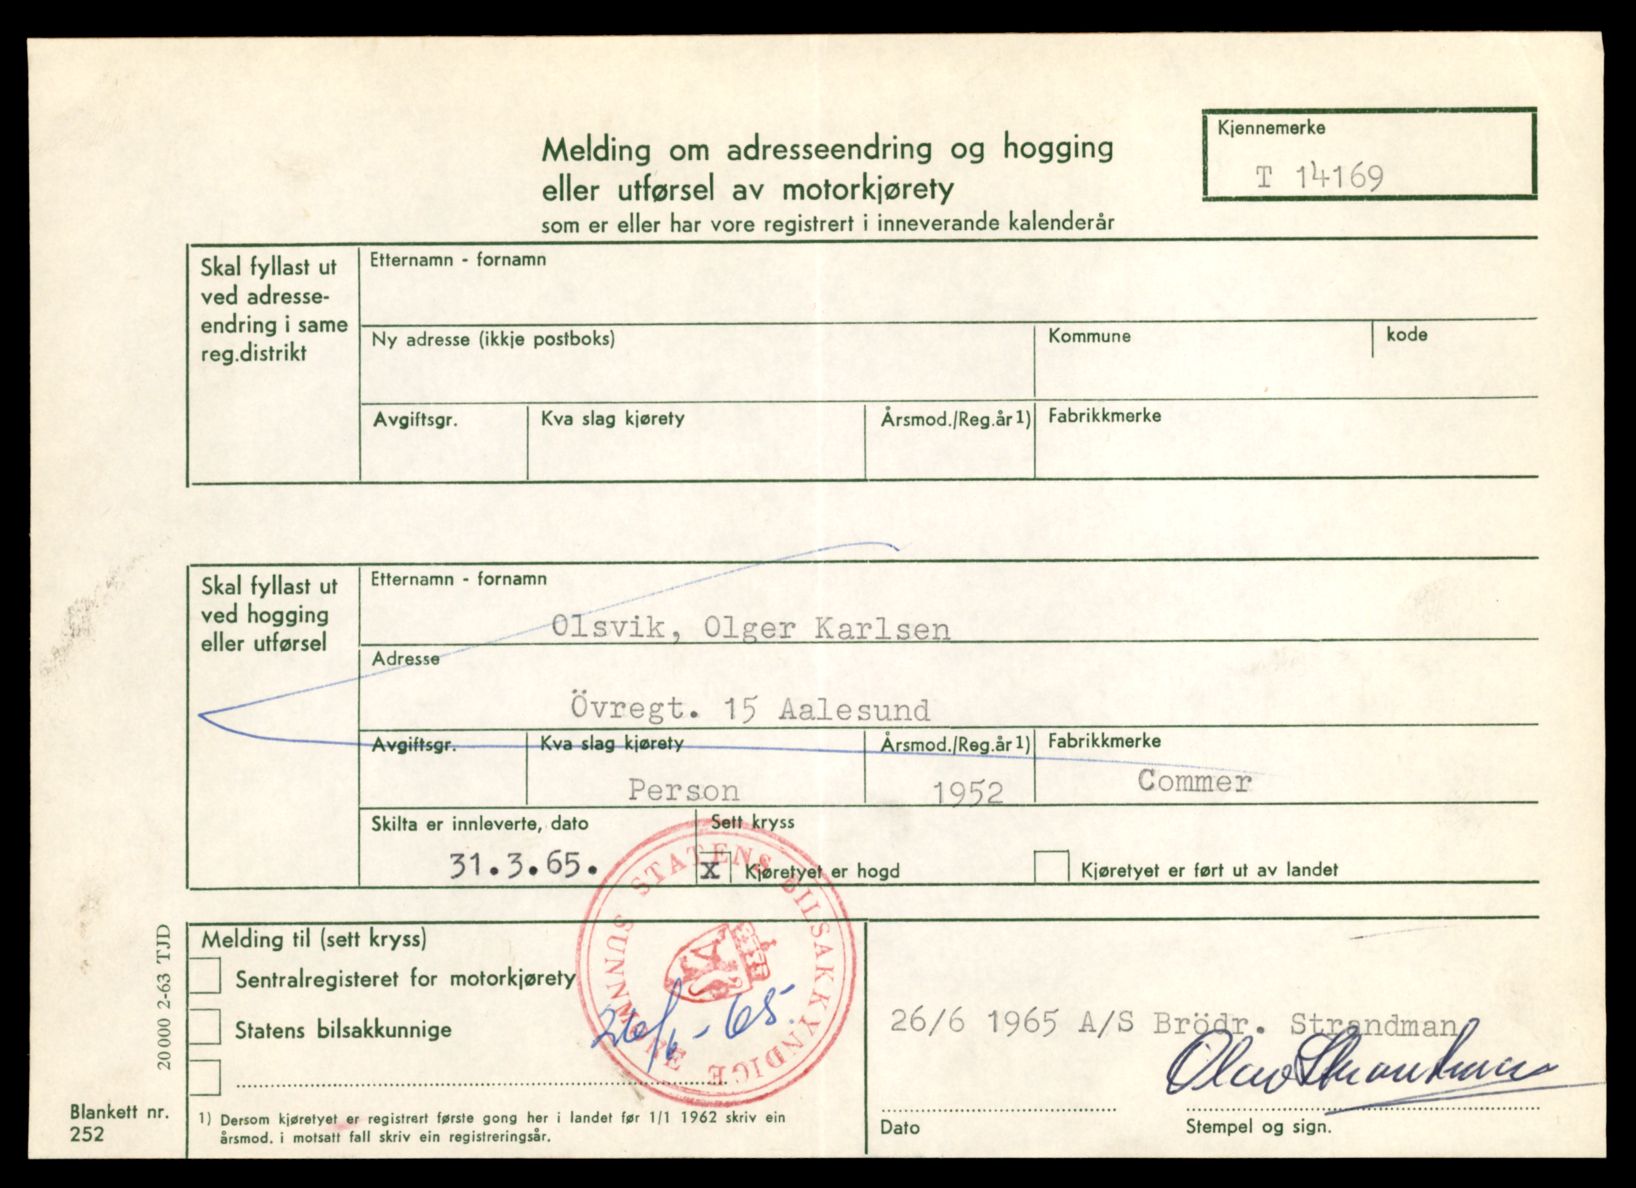 Melding om adresseendring og hogging
eller utførsel av motorkjørety
som er eller har vore registrert i inneverande kalenderår
Kjennemerke
T 14169
Skal fyllast ut
ved adresse-
endring i same
reg.distrikt
Etternamn - fornamn
Ny adresse (ikkje postboks)
Kommune
kode
Avgiftsgr.
Kva slag kjørety
Årsmod./Reg.år 1)
Fabrikkmerke
Skal fyllast ut
ved hogging
eller utførsel
Etternamn - fornamn
Olsvik, Olger Karlsen
Adresse
Övregt. 15 Aalesund
Avgiftsgr.
Kva slag kjørety
Person
Årsmod./Reg.år 1)
1952
Fabrikkmerke
Commer
Skilta er innleverte, dato
31.3.65.
Sett kryss
x Kjøretyet er hogd
Kjøretyet er ført ut av landet
Melding til (sett kryss)
Sentralregisteret for motorkjørety
Statens bilsakkunnige
STATENS BILSAKKYNDIGE
SUNNMØRE
26/6-65.
26/6 1965 A/S Brödr. Strandman
Olav Strandman
Dato
Stempel og sign.
1) Dersom kjøretyet er registrert første gong her i landet før 1/1 1962 skriv ein
årsmod. i motsatt fall skriv ein registreringsår.
20000 2-63 TJD
Blankett nr.
252